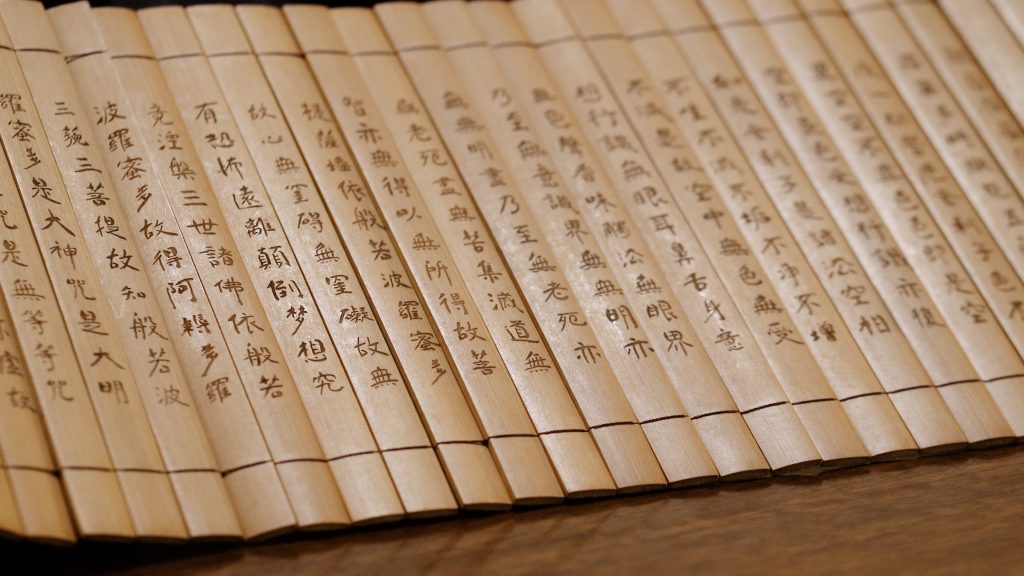 度一切苦厄舍利子色不
異空空不異色色即是空
空即是色受想行識亦復
如是舍利子是諸法空相
不生不滅不垢不淨不增
不減是故空中無色無受
想行識無眼耳鼻舌身意
無色聲香味觸法無眼界
乃至無意識界無無明亦
無無明盡乃至無老死亦
無老死盡無苦集滅道無
智亦無得以無所得故菩
提薩埵依般若波羅蜜多
故心無罣碍無罣礙故無
有恐怖遠離顛倒夢想究
竟涅槃三世諸佛依般若
波羅蜜多故得阿耨多羅
三藐三菩提故知般若波
羅蜜多是大神咒是大明
咒是無等等咒
不虛故